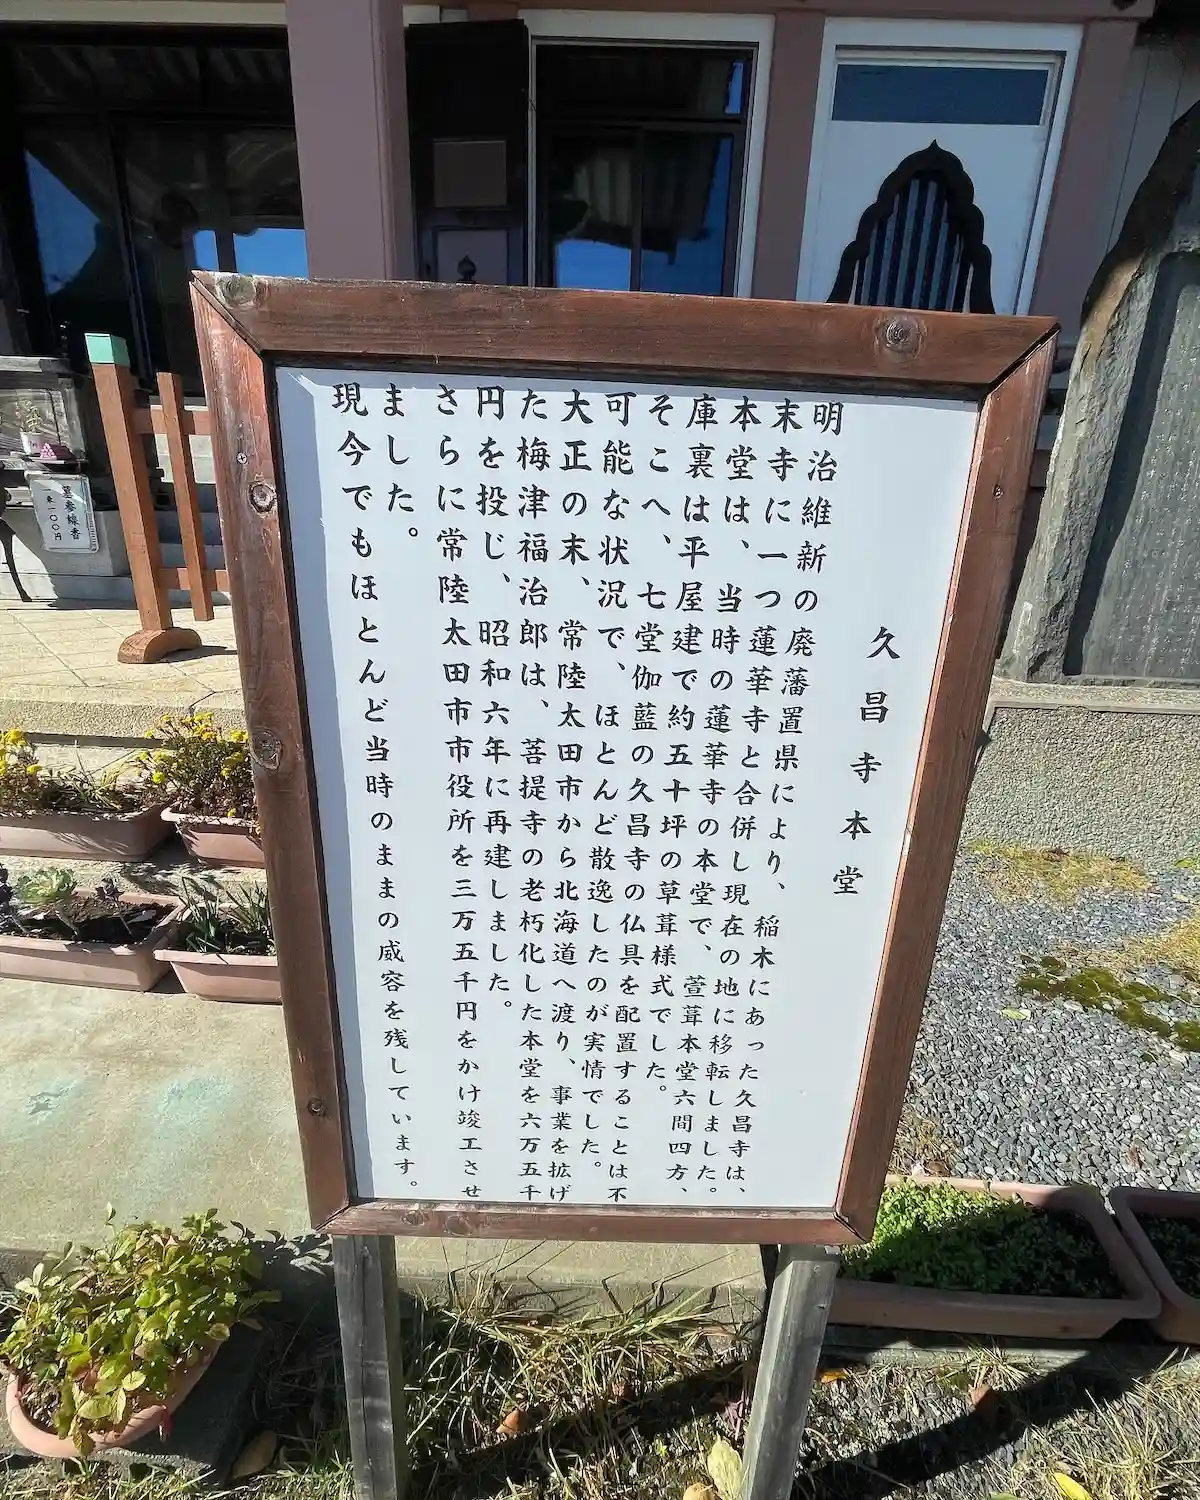 久昌寺本堂
明治維新の廃藩置県により、稲木にあった久昌寺は、
末寺に一つ蓮華寺と合併し現在の地に移転しました。
本堂は、当時の蓮華寺の本堂で、萱葺本堂六間四方、
庫裏は平屋建で約五十坪の草葺様式でした。
そこへ、七堂伽藍の久昌寺の仏具を配置することは不
可能な状況で、ほとんど散逸したのが実情でした。
大正の末、常陸太田市から北海道へ渡り、事業を拡げ
た梅津福治郎は、菩提寺の老朽化した本堂を六万五千
円を投じ、昭和六年に再建しました。
さらに常陸太田市市役所を三万五千円をかけ竣工させ
ました。
現今でもほとんど当時のままの威容を残しています。
線香
一束一〇〇円